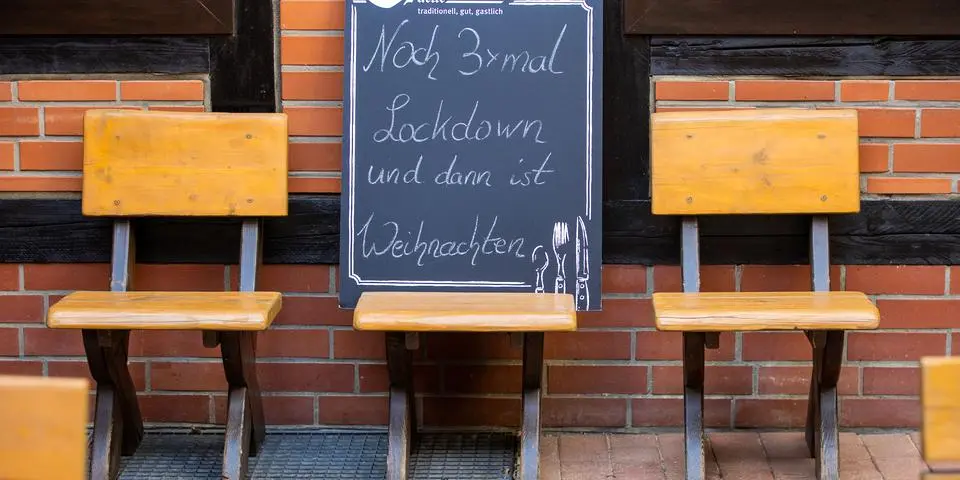 traditionell, gut, gastlich
Noch 3×mal
Lockdown
und dann ist
Weihnachten